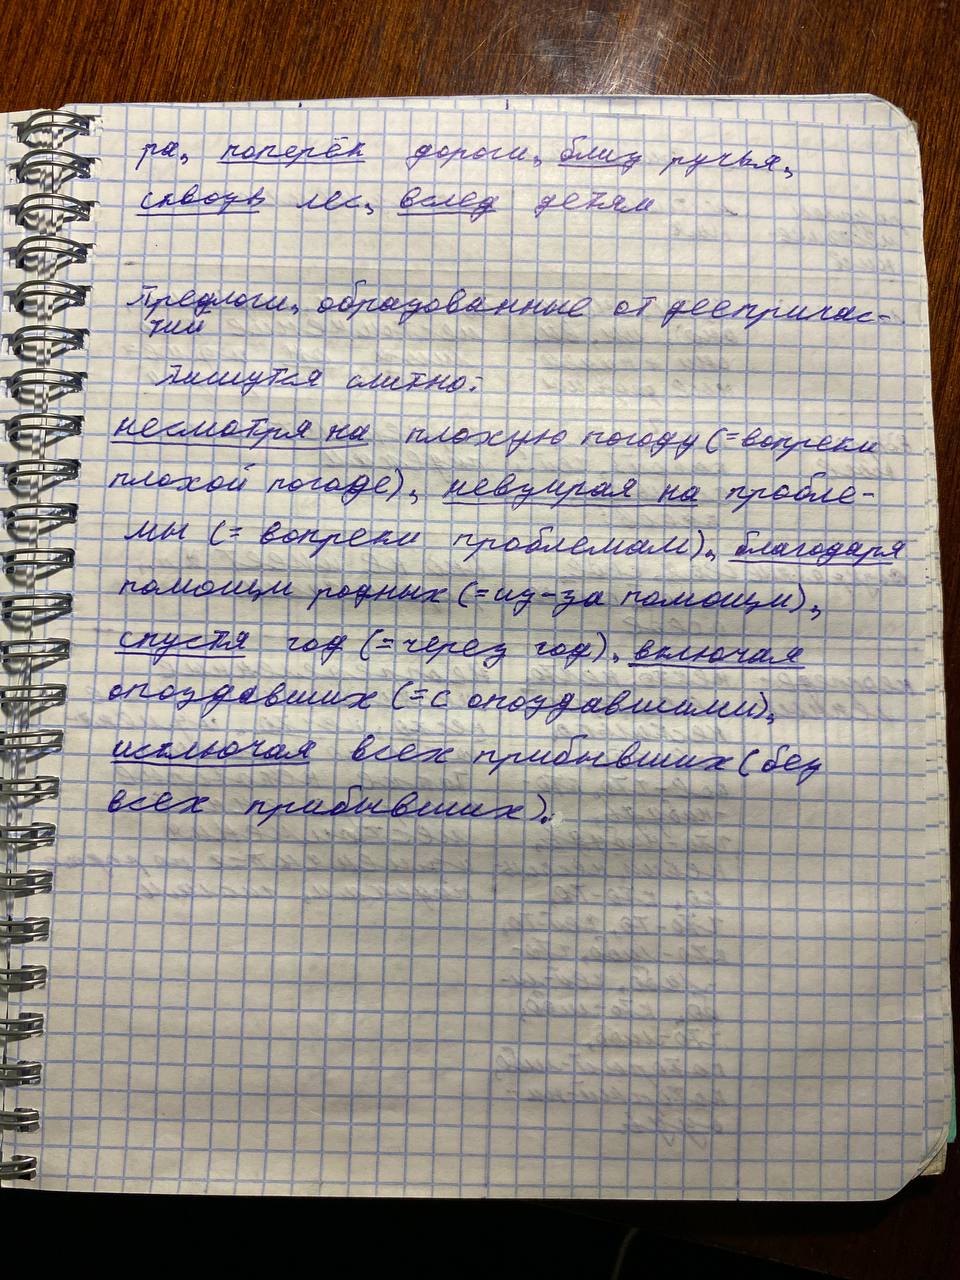 ра, поперёк дороги, близ ручья,
сквозь лес, вслед детям
Предлоги, образованные от деепричас-
тий
Пишутся слитно:
несмотря на плохую погоду (=вопреки
плохой погоде), невзирая на пробле-
мы (= вопреки проблемам), благодаря
помощи родных (=из-за помощи),
спустя год (=через год), включая
опоздавших (=с опоздавшими),
исключая всех прибывших (без
всех прибывших).